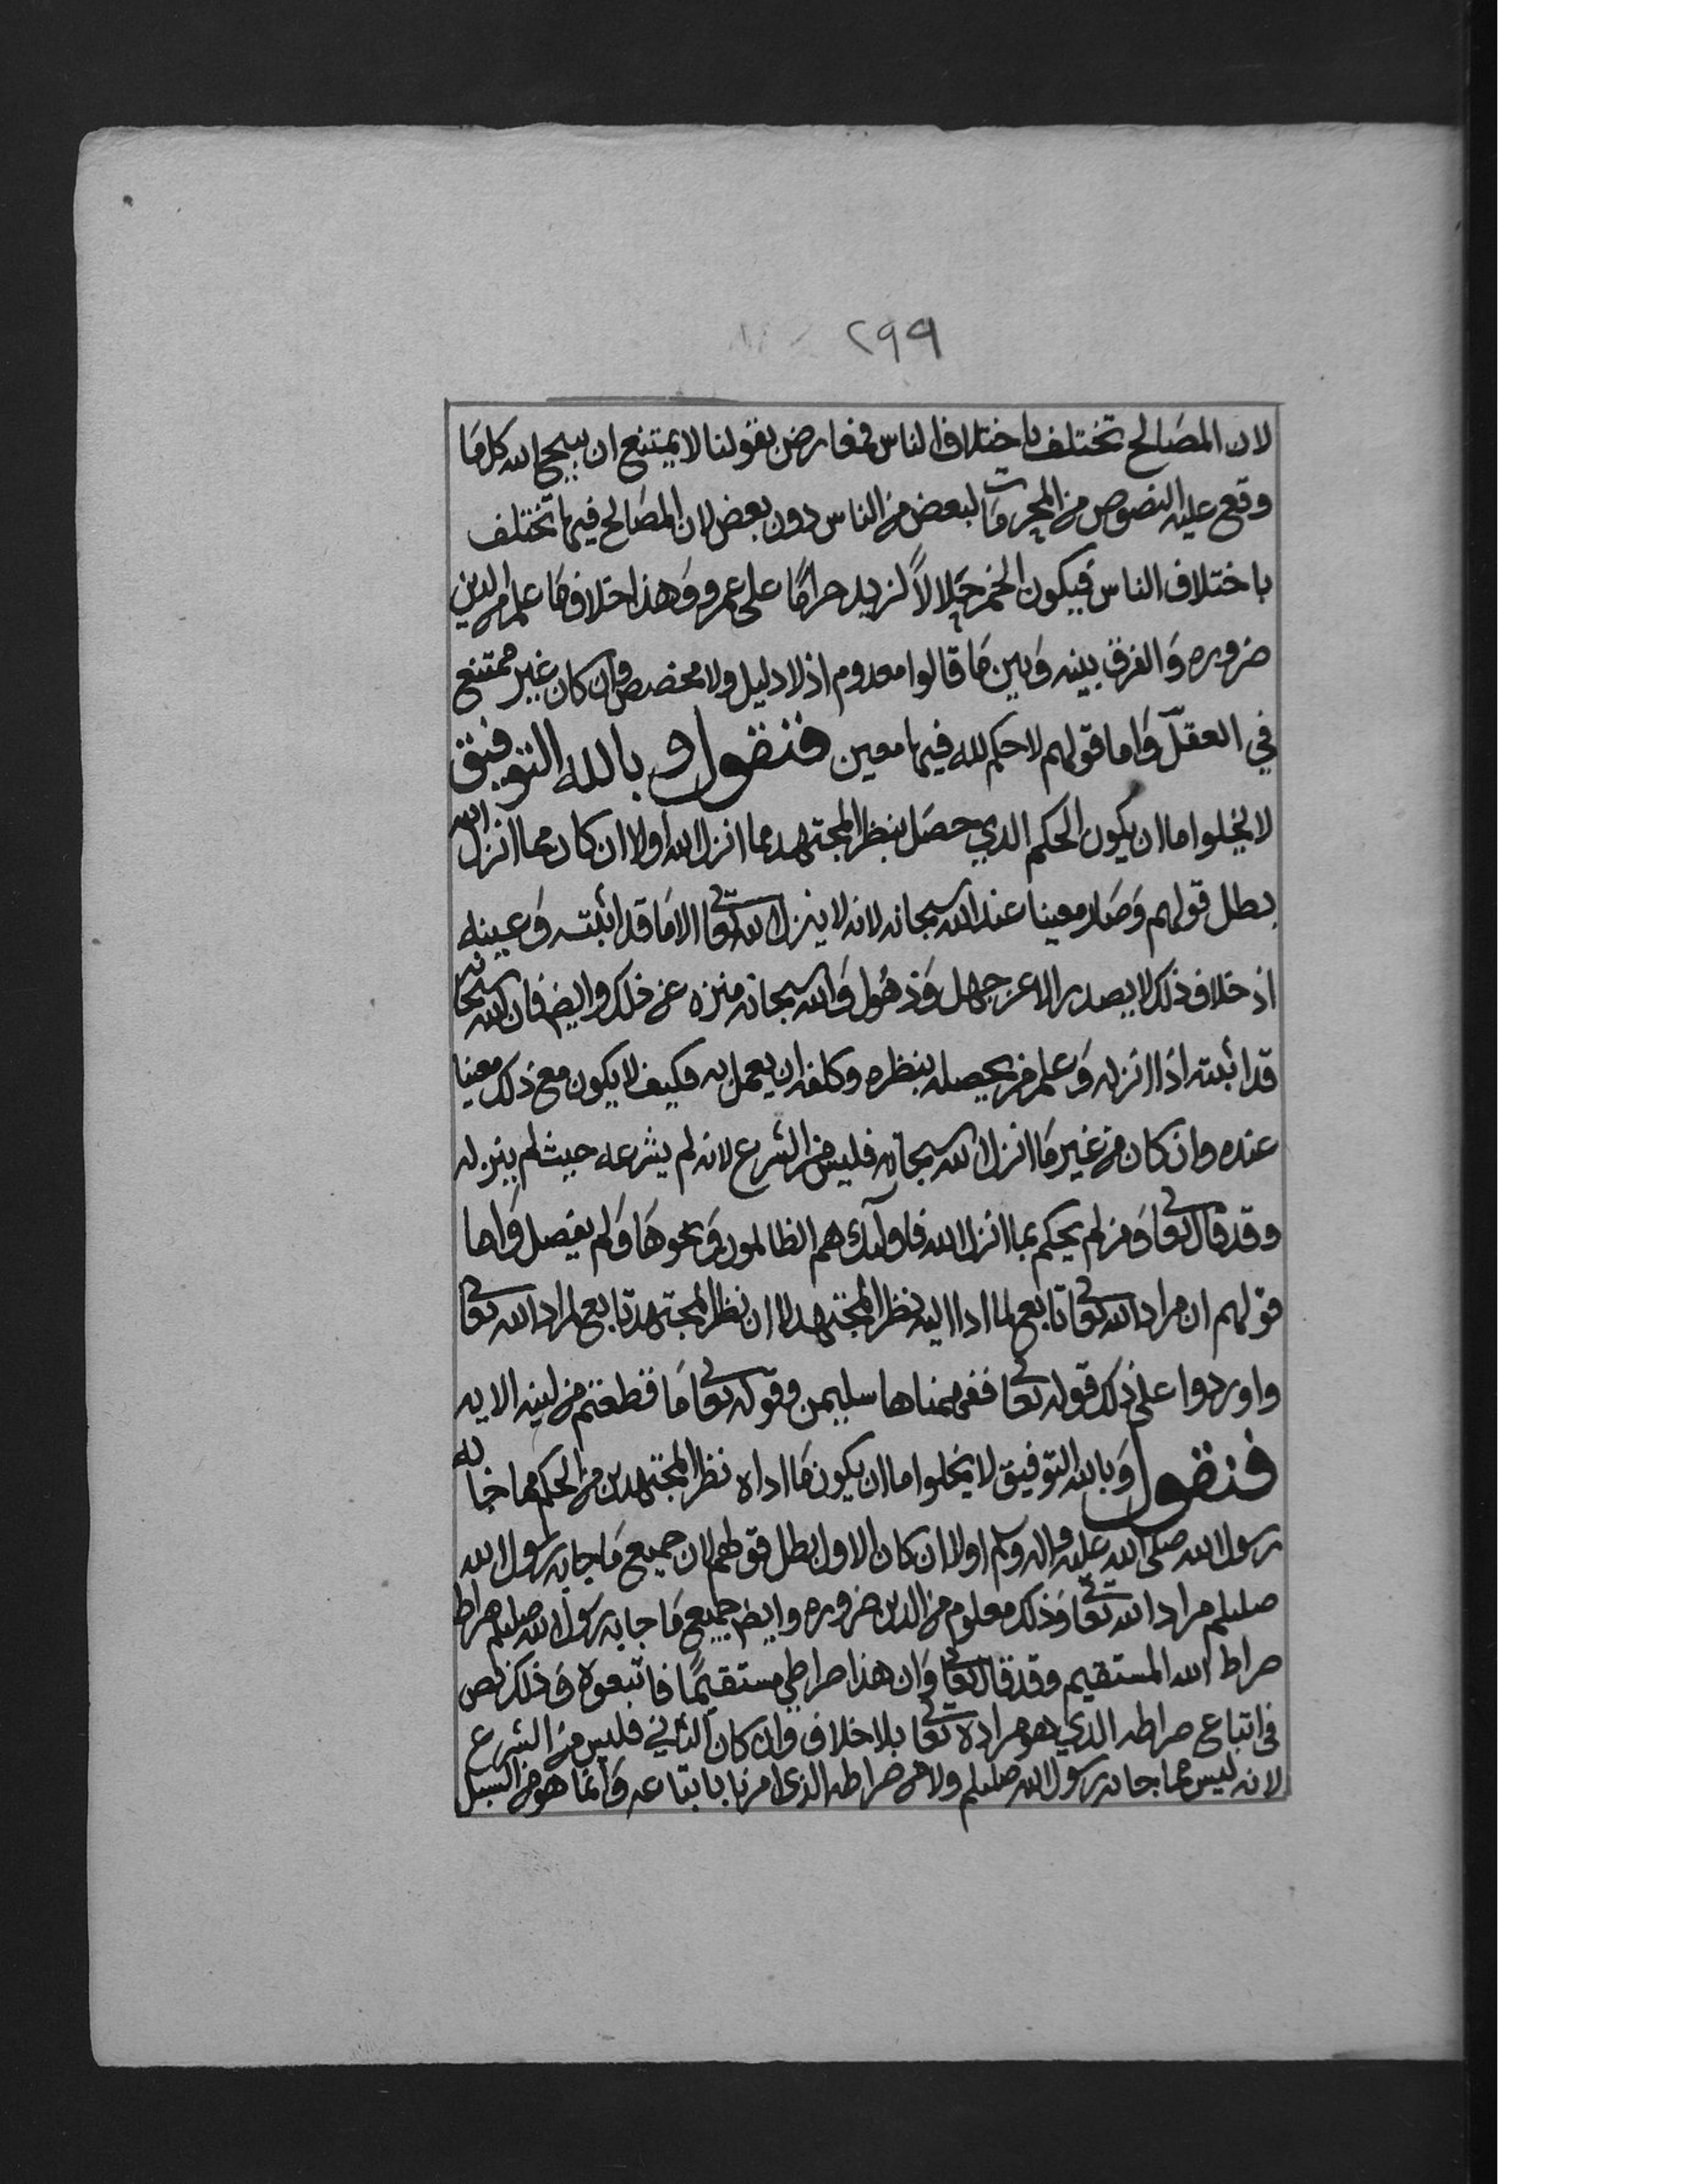 ٢٩٩
لان المصالح تختلف باختلاف الناس فمعارض بقولنا لا يمتنع ان يبيح الله كل ما
وقع عليه النصوص من المحرمات لبعض من الناس دون بعض لان المصالح فيها تختلف
باختلاف الناس فيكون الخمر حلالاً لزيد حراما على عمرو وهذا خلاف ما علم من الدين
ضروره والفرق بينه وبين ما قالوا معدوم اذ لا دليل ولا مخصص وان كان غير ممتنع
في العقل واما قولهم لا حكم لله فيها معين فنقول وبالله التوفيق
لا يخلوا اما ان يكون الحكم الذي حصل بنظر المجتهد مما انزل الله اولا ان كان مما انزل الله
بطل قولهم وصار معينا عند الله سبحانه لانه لا ينزل الله تعا الا ما قد اثبته وعينه
اذ خلاف ذلك لا يصدر الا عن جهل وذهول والله سبحانه منزه عن ذلك وايضا فان الله سبحانه
قد اثبته اذا انزله وعلم من يحصله بنظره وكلفه ان يعمل به فكيف لا يكون مع ذلك معينا
عنده وان كان من غير ما انزل الله سبحانه فليس من الشرع لانه لم يشرعه حيث لم ينزله
وقد قال تعا ومن لم يحكم بما انزل الله فاولئك هم الظالمون ونحوها ولم يفصل واما
قولهم ان مراد الله تعا تابع لما ادا اليه نظر المجتهد لا ان نظر المجتهد تابع لمراد الله تعا
واوردوا على ذلك قوله تعا ففهمناها سليمن وقوله تعا ما قطعتم من لينه الايه
فنقول وبالله التوفيق لا يخلوا اما ان يكون ما اداه نظر المجتهدين من الحكم مما جا به
رسول الله صلى الله عليه واله وسلم اولا ان كان الاول بطل قولهم لان جميع ما جا به رسول الله
صللم مراد الله تعا وذلك معلوم من الدين ضروره وايضا جميع ما جا به رسول الله صللم صراط
صراط الله المستقيم وقد قال تعا وان هذا صراطي مستقيمًا فاتبعوه وذلك نص
في اتباع صراطه الذي هو مراده تعا بلا خلاف وان كان الثاني فليس من الشرع
لانه ليس مما جا به رسول الله صللم ولا من صراطه الذي امرنا باتباعه وانما هو من السبل